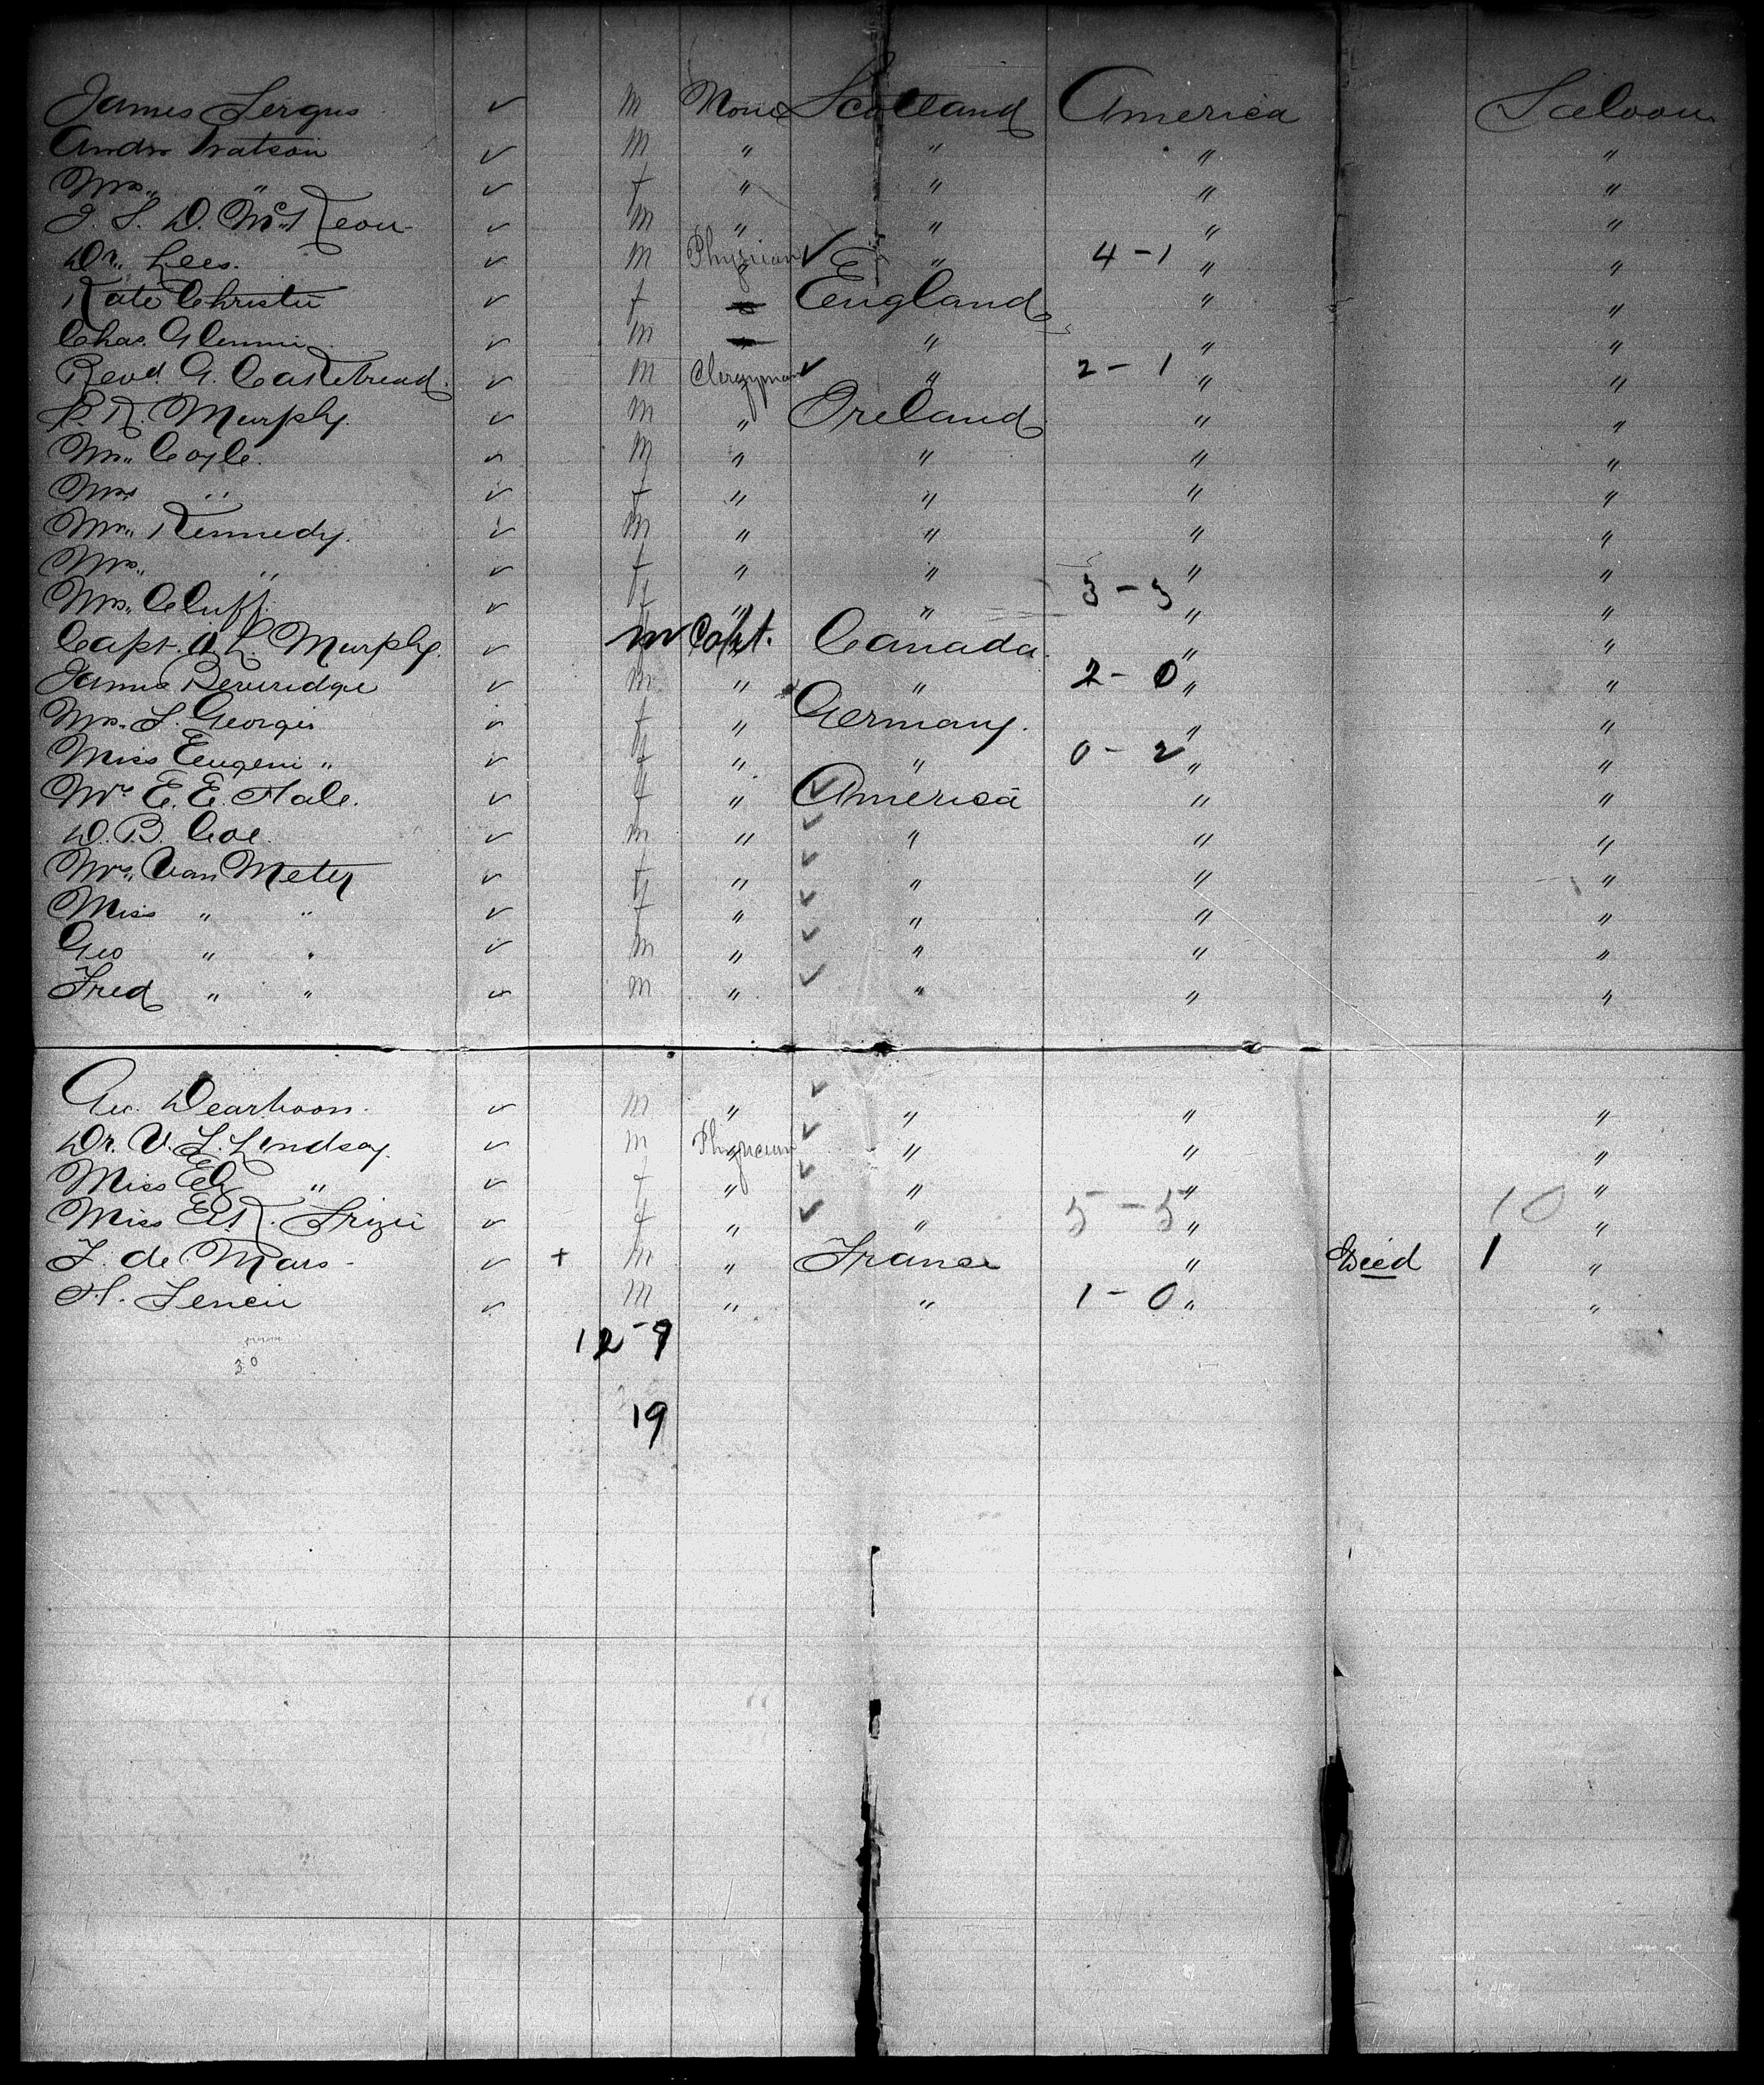 James Fergus ✓ m None Scotland America Saloon
Andw Watson ✓ m " " " "
Mrs " ✓ f " " " "
J. S. D. McKeon ✓ m " " " "
Dr. Lees. ✓ m Physician ✓ E " 4 - 1 " "
Kate Christie ✓ f England " "
Chas. Glennie ✓ m " " "
Revd. G. ✓ m Clergyman ✓ " 2 - 1 " "
P. R. Murphy. ✓ m " Ireland " "
Mr. Coyle. ✓ m " " " "
Mrs " ✓ f " " " "
Mr. Kennedy. ✓ m " " " "
Mrs. " ✓ f " " " "
Mrs. Cluff. ✓ f " " 3 - 3 " "
Capt. A. L. Murphy. ✓ m Capt. Canada. " "
James Beveridge ✓ m " " 2 - 0 " "
Mrs. S. Georgis ✓ f " Germany. " "
Miss Eugeni " ✓ f " " 0 - 2 " "
Mrs E. E. Hale. ✓ f " ✓ America " "
D. B. Coe. ✓ m " ✓ " " "
Mrs. Van Meter ✓ f " ✓ " " "
Miss " " ✓ f " ✓ " " "
Geo " " ✓ m " ✓ " " "
Fred " " ✓ m " ✓ " " "
Geo. Dearboon. ✓ m " ✓ " " "
Dr. V. L. Lindsay. ✓ m Physician ✓ " " "
Miss " ✓ f " ✓ " " "
Miss E. R. ✓ f " ✓ " 5 - 5 " 10 "
F. de Mars - ✓ + m " France " Died 1 "
H. ✓ m " " 1 - 0 " "
12 - 9
30
19